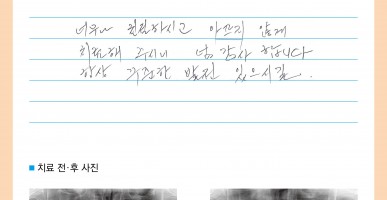 너무나 친절하시고 아프지 않게
치료해 주시니 넘 감사 합니다
항상 무궁한 발전 있으시길..
■ 치료 전·후 사진